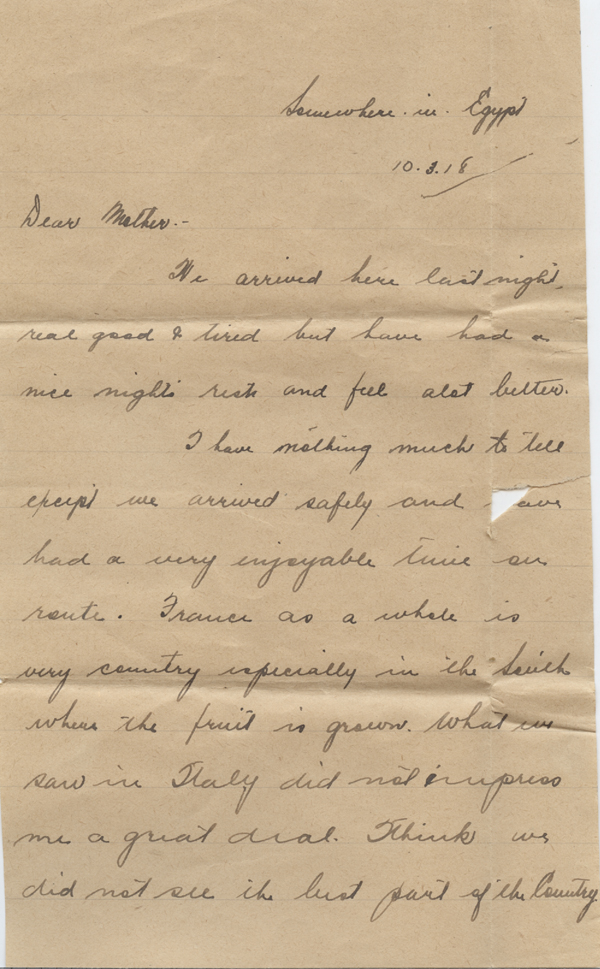 Somewhere. in. Egypt
10.3.18
Dear Mother.-
We arrived here last night,
real good & tired but have had a
nice nights rest and feel alot better.
I have nothing much to tell
except we arrived safely and ave
had a very enjoyable time on
route. France as a whole is
very country especially in the South
where the fruit is grown. What we
saw in Italy did not impress
me a great deal. I think we
did not see the best part of the Country.